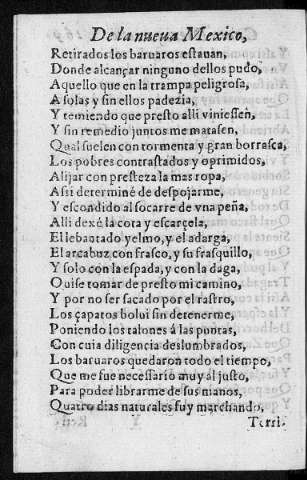 De la nueua Mexico,
Retirados los baruaros estauan,
Donde alcançar ninguno dellos pudo,
Aquello que en la trampa peligrosa,
A solas y sin ellos padezia,
Y temiendo que presto alli viniessen,
Y sin remedio juntos me matasen,
Qual suelen con tormenta y gran borrasca,
Los pobres contrastados y oprimidos,
Alijar con presteza la mas ropa,
Assi determiné de despojarme,
Y escondido al socarre de vna peña,
Alli dexé la cota y escarçela,
El lebantado yelmo, y el adarga,
El arcabuz con frasco, y su frasquillo,
Y solo con la espada, y con la daga,
Quise tomar de presto mi camino,
Y por no ser sacado por el rastro,
Los çapatos bolui sin detenerme,
Poniendo los talones á las puntas,
Con cuia diligencia deslumbrados,
Los baruaros quedaron todo el tiempo,
Que me fue necessario muy al justo,
Para poder librarme de sus manos,
Quatro dias naturales fuy marchando,
Terri-